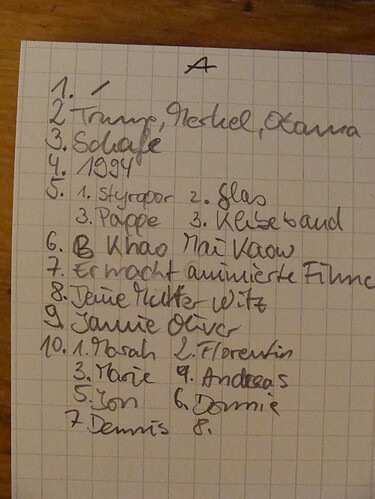 A
1. /
2 Trump, Merkel, Obama
3. Schafe
4. 1994
5. 1. Styropor 2. Glas
3. Pappe 3. Klebeband
6. B Khao Mai Kaow
7. Er macht animierte Filme
8. Deine Mutter Witz
9. Jamie Oliver
10. 1. Marah 2. Florentin
3. Marie 4. Andreas
5. Jon 6. Donnie
7. Dennis 8.